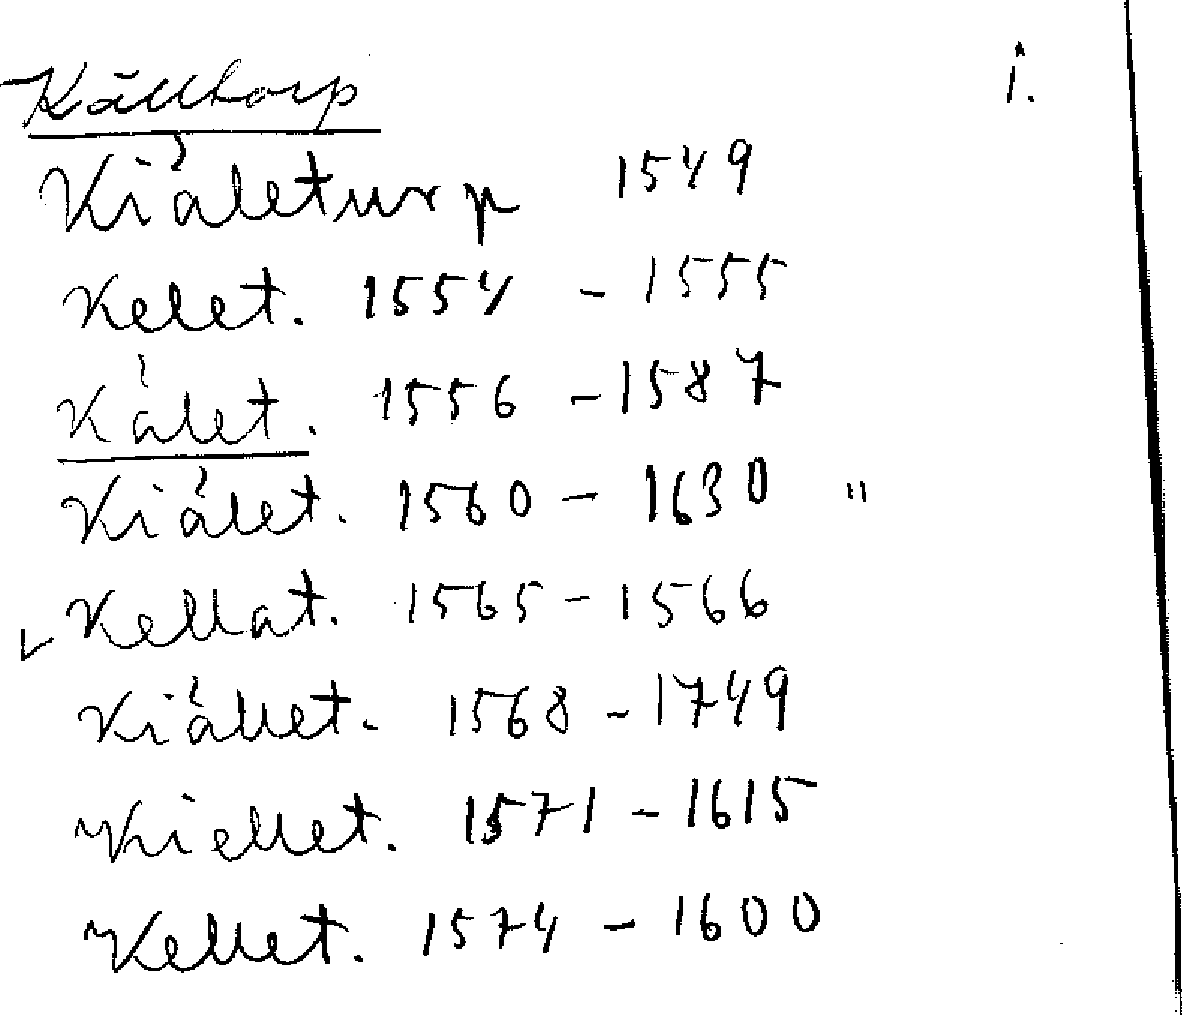 Källtorp 1.
Kiåleturp 1549
Kelet. 1554 - 1555
Kålet. 1556 - 1587
Kiålet. 1560 - 1630 "
Kellat. 1565 - 1566
Kiållet. 1568 - 1749
Kiellet. 1571 - 1615
Kellet. 1574 - 1600